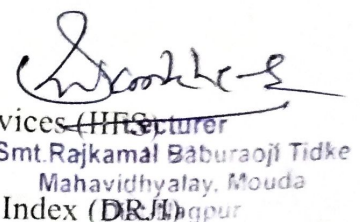 vices (IIFS)
Lecturer
Smt.Rajkamal Baburaoji Tidke
Mahavidhyalay, Mouda
Index (DRJI)
Dist. Nagpur